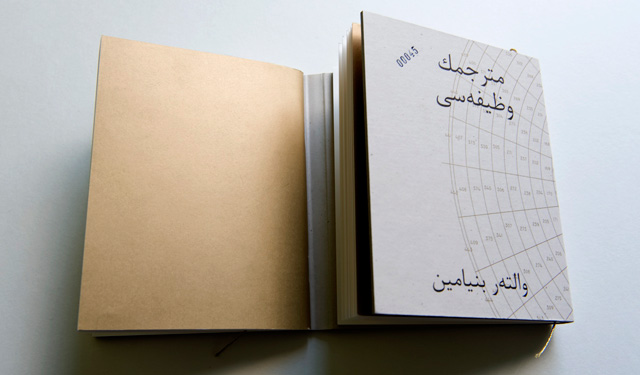 00045
مترجمك
وظيفه‌سی
والتەر بنيامين